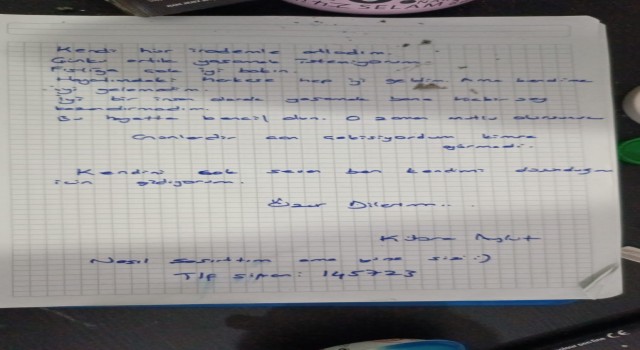 SELAM
Kendi hür irademle atladım.
Çünkü artık yaşamak istemiyorum.
çok iyi bakın.
Hayatımdaki herkese hep iyi geldim. Ama kendime
iyi gelemedim.
iyi bir insan olarak yaşamak bana hiçbir şey
kazandırmadı.
Bu hayatta bencil olun. O zaman mutlu olursunuz
acı çekiyordum kimse
görmedi.
Kendini çok seven ben kendimi
için gidiyorum.
Özür Dilerim...
Kübra
Nasıl şaşırttım ama yine sizi :)
Tlf şifrem: 145723
CE